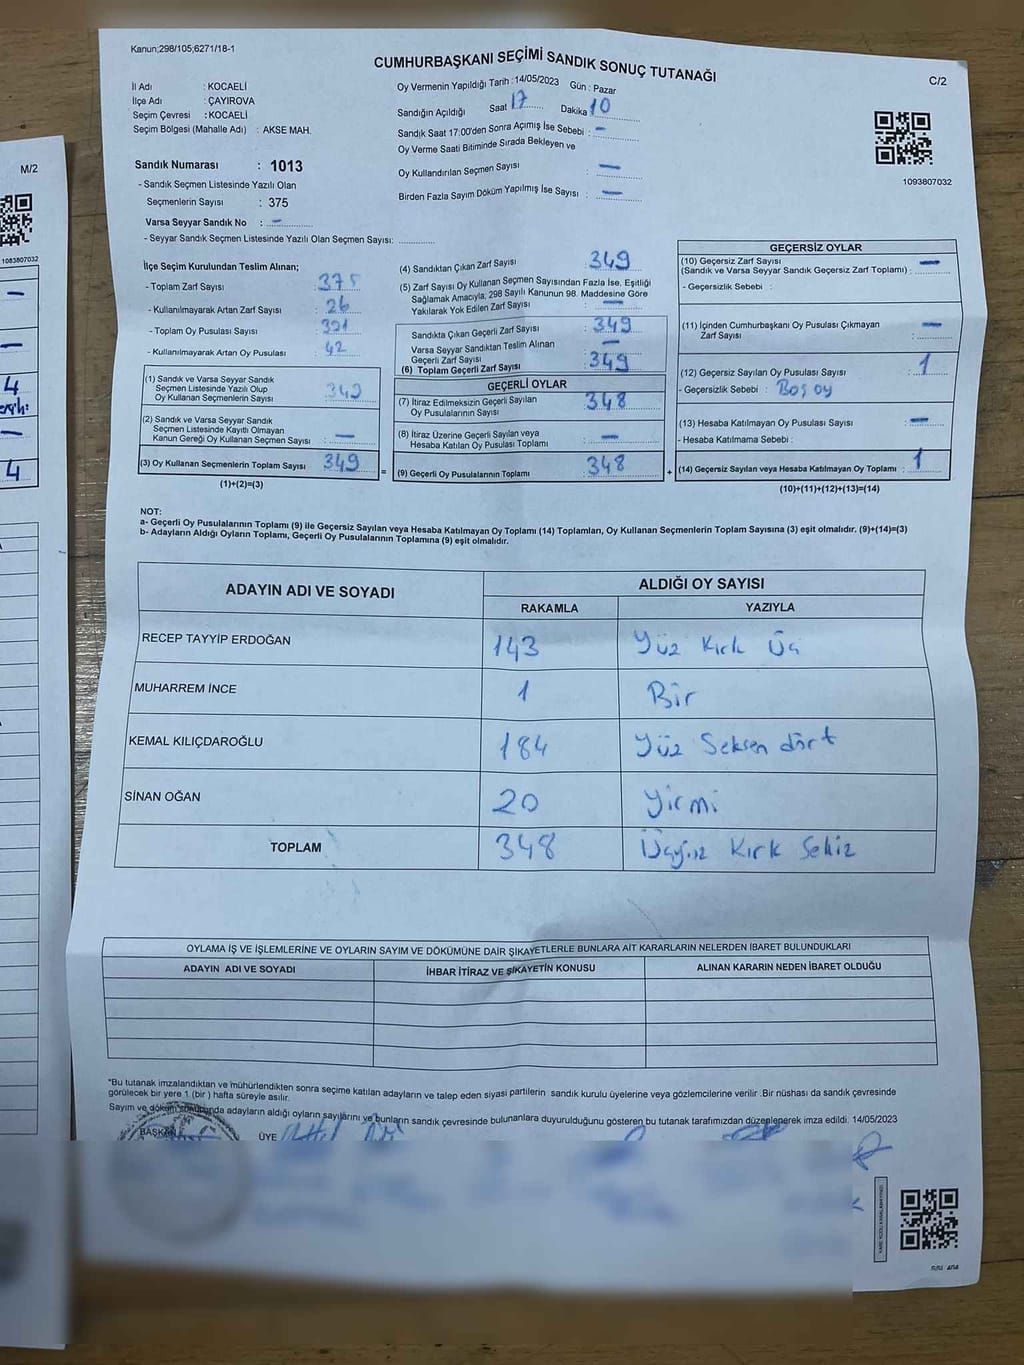 Kanun;298/105;6271/18-1
CUMHURBAŞKANI SEÇİMİ SANDIK SONUÇ TUTANAĞI
C/2
İl Adı : KOCAELİ
İlçe Adı : ÇAYIROVA
Seçim Çevresi : KOCAELİ
Seçim Bölgesi (Mahalle Adı) : AKSE MAH.
Sandık Numarası : 1013
- Sandık Seçmen Listesinde Yazılı Olan
Seçmenlerin Sayısı : 375
Varsa Seyyar Sandık No : -
- Seyyar Sandık Seçmen Listesinde Yazılı Olan Seçmen Sayısı:
Oy Vermenin Yapıldığı Tarih : 14/05/2023 Gün : Pazar
Sandığın Açıldığı Saat 17 Dakika 10
Sandık Saat 17:00'den Sonra Açılmış İse Sebebi : -
Oy Verme Saati Bitiminde Sırada Bekleyen ve
Oy Kullandırılan Seçmen Sayısı : -
Birden Fazla Sayım Döküm Yapılmış İse Sayısı : -
1093807032
İlçe Seçim Kurulundan Teslim Alınan;
- Toplam Zarf Sayısı : 375
- Kullanılmayarak Artan Zarf Sayısı : 26
- Toplam Oy Pusulası Sayısı : 391
- Kullanılmayarak Artan Oy Pusulası : 42
(1) Sandık ve Varsa Seyyar Sandık
Seçmen Listesinde Yazılı Olup
Oy Kullanan Seçmenlerin Sayısı : 349
(2) Sandık ve Varsa Seyyar Sandık
Seçmen Listesinde Kayıtlı Olmayan
Kanun Gereği Oy Kullanan Seçmen Sayısı : -
(3) Oy Kullanan Seçmenlerin Toplam Sayısı : 349
(1)+(2)=(3)
(4) Sandıktan Çıkan Zarf Sayısı : 349
(5) Zarf Sayısı Oy Kullanan Seçmen Sayısından Fazla İse, Eşitliği
Sağlamak Amacıyla, 298 Sayılı Kanunun 98. Maddesine Göre
Yakılarak Yok Edilen Zarf Sayısı : -
Sandıkta Çıkan Geçerli Zarf Sayısı : 349
Varsa Seyyar Sandıktan Teslim Alınan
Geçerli Zarf Sayısı : -
(6) Toplam Geçerli Zarf Sayısı : 349
GEÇERLİ OYLAR
(7) İtiraz Edilmeksizin Geçerli Sayılan
Oy Pusulalarının Sayısı : 348
(8) İtiraz Üzerine Geçerli Sayılan veya
Hesaba Katılan Oy Pusulası Toplamı : -
= (9) Geçerli Oy Pusulalarının Toplamı : 348
GEÇERSİZ OYLAR
(10) Geçersiz Zarf Sayısı
(Sandık ve Varsa Seyyar Sandık Geçersiz Zarf Toplamı) : -
- Geçersizlik Sebebi :
(11) İçinden Cumhurbaşkanı Oy Pusulası Çıkmayan
Zarf Sayısı : -
(12) Geçersiz Sayılan Oy Pusulası Sayısı : 1
- Geçersizlik Sebebi : Boş oy
(13) Hesaba Katılmayan Oy Pusulası Sayısı : -
- Hesaba Katılmama Sebebi :
+ (14) Geçersiz Sayılan veya Hesaba Katılmayan Oy Toplamı : 1
(10)+(11)+(12)+(13)=(14)
NOT:
a- Geçerli Oy Pusulalarının Toplamı (9) ile Geçersiz Sayılan veya Hesaba Katılmayan Oy Toplamı (14) Toplamları, Oy Kullanan Seçmenlerin Toplam Sayısına (3) eşit olmalıdır. (9)+(14)=(3)
b- Adayların Aldığı Oyların Toplamı, Geçerli Oy Pusulalarının Toplamına (9) eşit olmalıdır.
ADAYIN ADI VE SOYADI ALDIĞI OY SAYISI
RAKAMLA YAZIYLA
RECEP TAYYİP ERDOĞAN 143 Yüz Kırk Üç
MUHARREM İNCE 1 Bir
KEMAL KILIÇDAROĞLU 184 Yüz Seksen dört
SİNAN OĞAN 20 Yirmi
TOPLAM 348 Üçyüz Kırk Sekiz
OYLAMA İŞ VE İŞLEMLERİNE VE OYLARIN SAYIM VE DÖKÜMÜNE DAİR ŞİKAYETLERLE BUNLARA AİT KARARLARIN NELERDEN İBARET BULUNDUKLARI
ADAYIN ADI VE SOYADI İHBAR İTİRAZ VE ŞİKAYETİN KONUSU ALINAN KARARIN NEDEN İBARET OLDUĞU
"Bu tutanak imzalandıktan ve mühürlendikten sonra seçime katılan adayların ve talep eden siyasi partilerin sandık kurulu üyelerine veya gözlemcilerine verilir .Bir nüshası da sandık çevresinde
görülecek bir yere 1 (bir) hafta süreyle asılır.
Sayım ve döküm sonucunda adayların aldığı oyların sayılarını ve bunların sandık çevresinde bulunanlara duyurulduğunu gösteren bu tutanak tarafımızdan düzenlenerek imza edildi. 14/05/2023
BAŞKAN ÜYE
M/2
1083807032
-
-
4
-
4